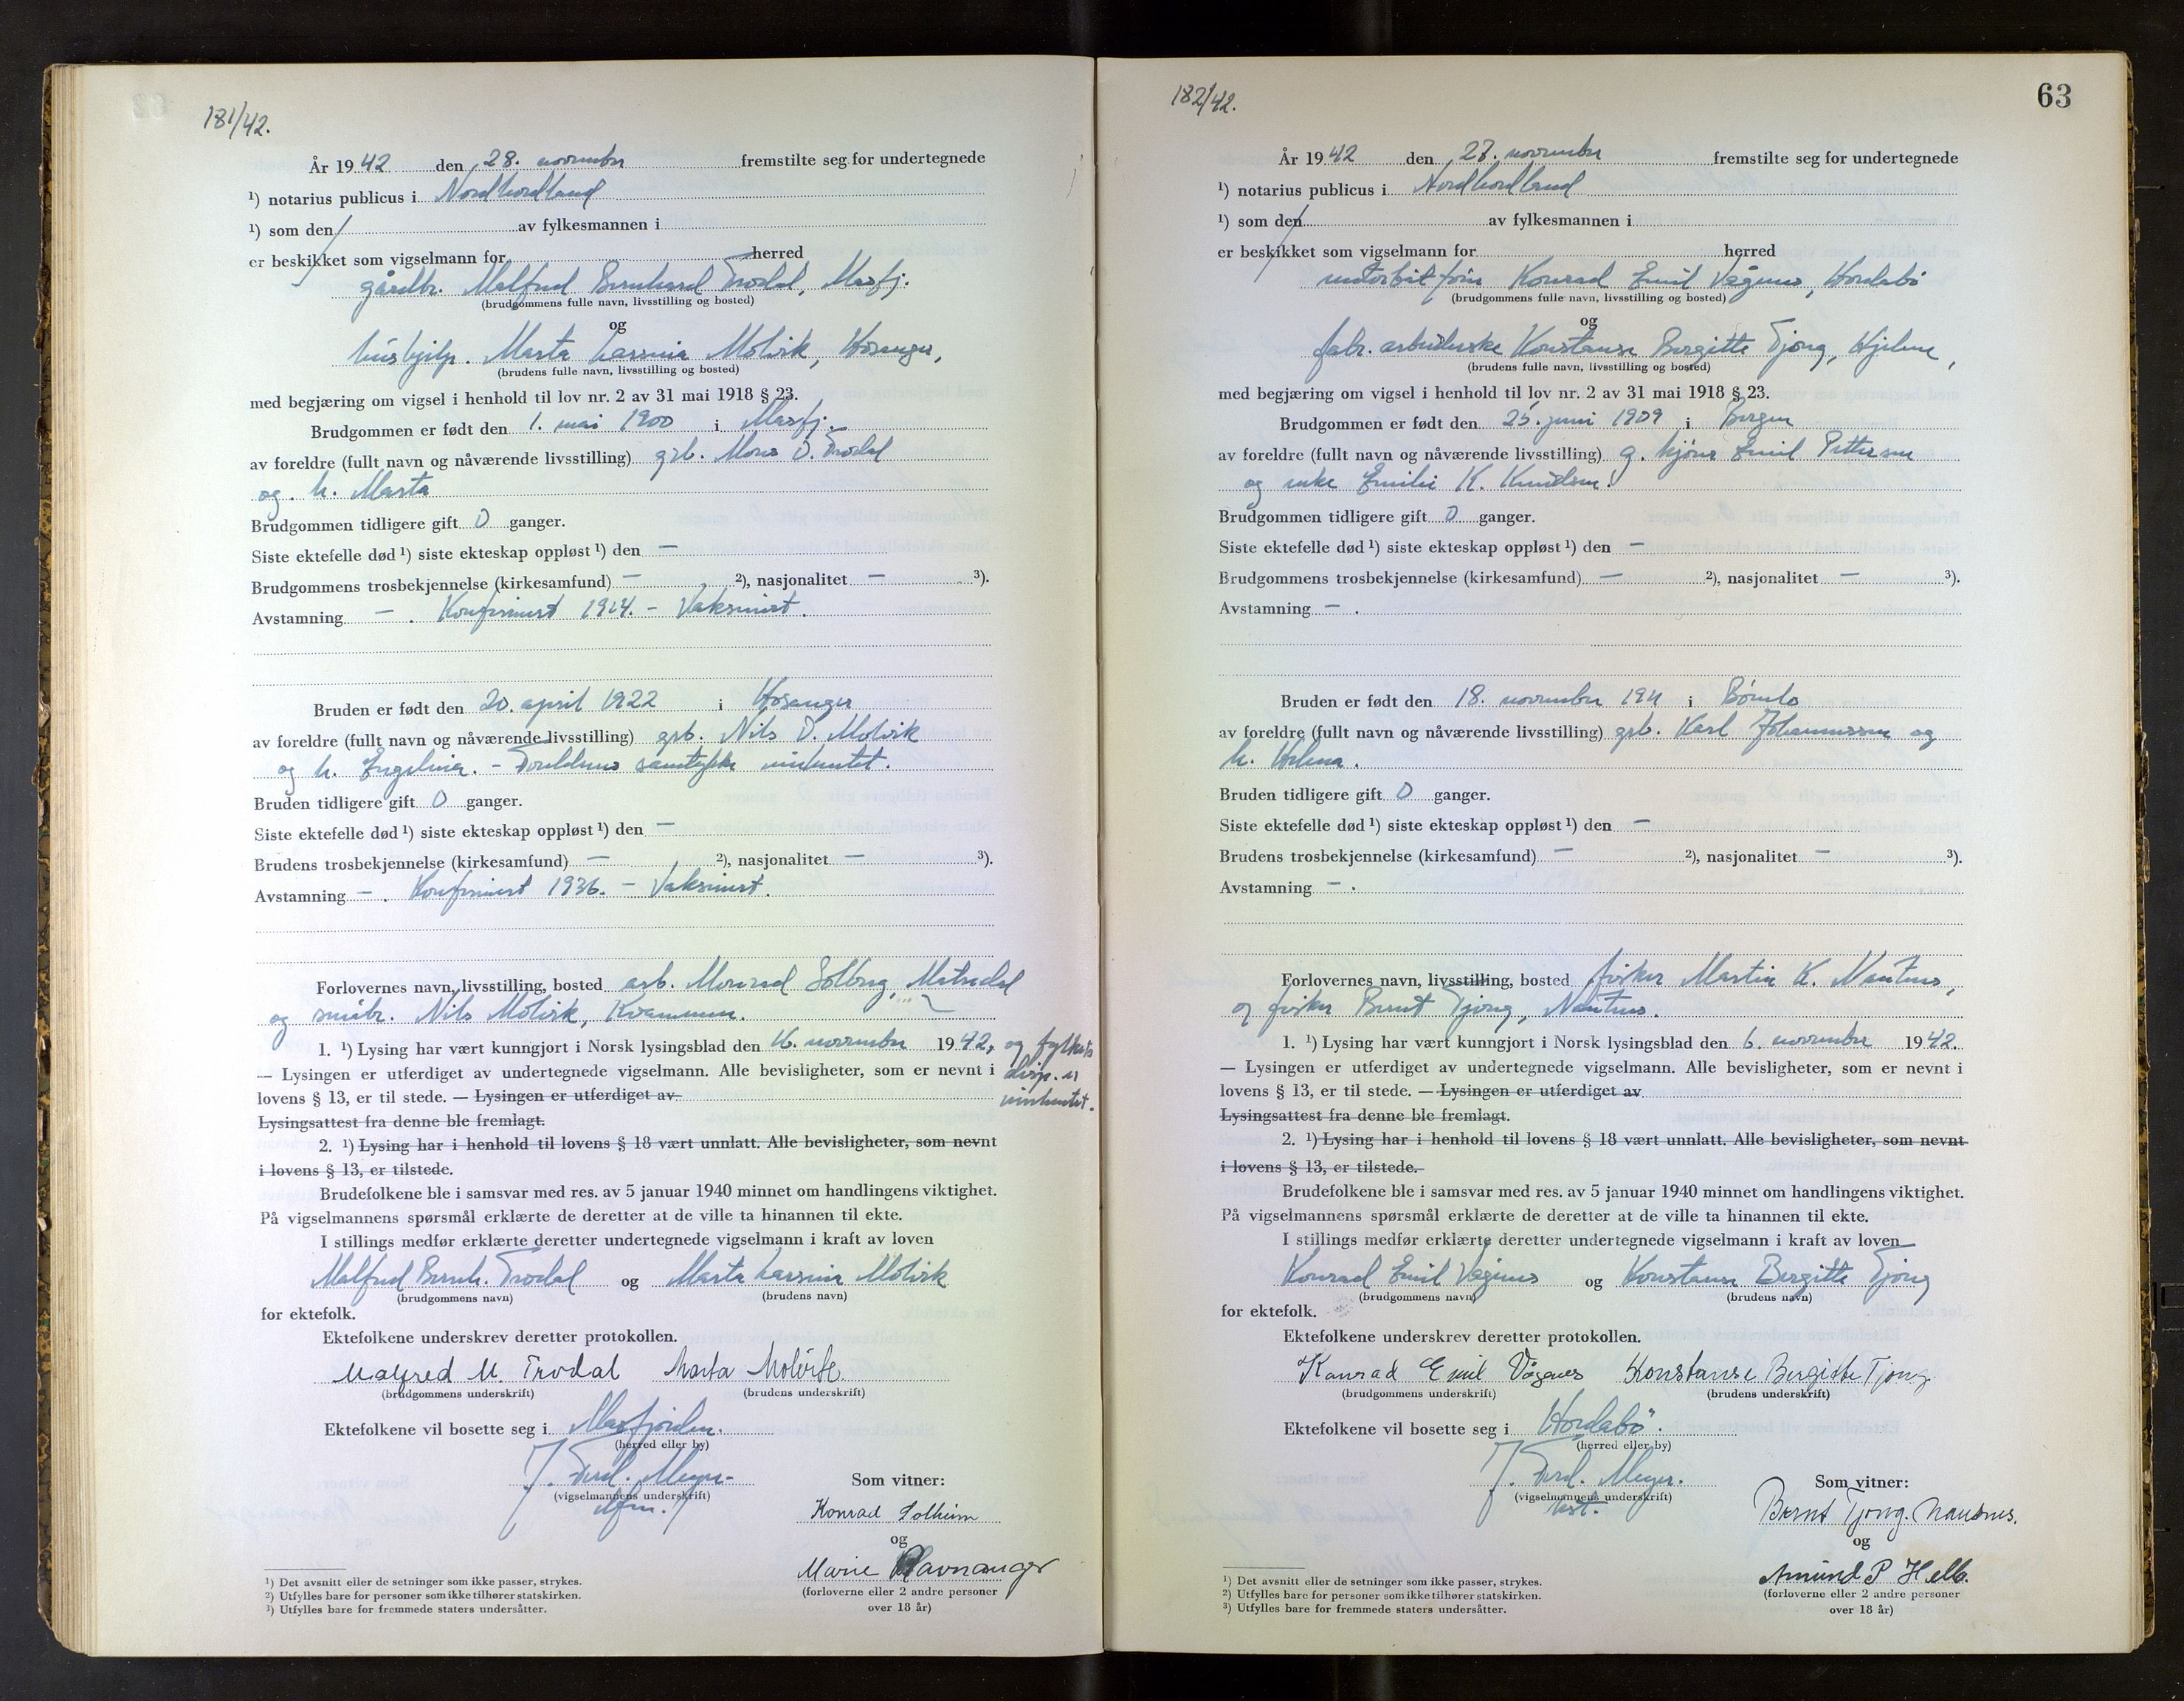 181/42.
År 1942 den 28. november fremstilte seg for undertegnede
¹) notarius publicus i Nordhordland
¹) som den av fylkesmannen i
er beskikket som vigselmann for herred
gårdbr. Malfred Bernhard Trodal, Masfj.
(brudgommens fulle navn, livsstilling og bosted)
og
hushjelp. Marta Larsina Molvik, Hosanger,
(brudens fulle navn, livsstilling og bosted)
med begjæring om vigsel i henhold til lov nr. 2 av 31 mai 1918 § 23.
Brudgommen er født den 1. mai 1900 i Masfj.
av foreldre (fullt navn og nåværende livsstilling) grb. Mons O. Trodal
og h. Marta
Brudgommen tidligere gift 0 ganger.
Siste ektefelle død ¹) siste ekteskap oppløst ¹) den —
Brudgommens trosbekjennelse (kirkesamfund) — ²), nasjonalitet — ³).
Avstamning — . Konfirmert 1914. - Vaksinert.
Bruden er født den 20. april 1922 i Hosanger
av foreldre (fullt navn og nåværende livsstilling) grb. Nils O. Molvik
og h. Engelina. - Foreldrenes samtykke innhentet.
Bruden tidligere gift 0 ganger.
Siste ektefelle død ¹) siste ekteskap oppløst ¹) den —
Brudens trosbekjennelse (kirkesamfund) — ²), nasjonalitet — ³).
Avstamning — . Konfirmert 1936. - Vaksinert.
Forlovernes navn, livsstilling, bosted arb. Monrad Solberg, Matredal
og småbr. Nils Molvik, Kvammen.
1. ¹) Lysing har vært kunngjort i Norsk lysingsblad den 16. november 1942, og fylkets
— Lysingen er utferdiget av undertegnede vigselmann. Alle bevisligheter, som er nevnt i disp. er
lovens § 13, er til stede. — Lysingen er utferdiget av innhentet.
Lysingsattest fra denne ble fremlagt.
2. ¹) Lysing har i henhold til lovens § 18 vært unnlatt. Alle bevisligheter, som nevnt
i lovens § 13, er tilstede.
Brudefolkene ble i samsvar med res. av 5 januar 1940 minnet om handlingens viktighet.
På vigselmannens spørsmål erklærte de deretter at de ville ta hinannen til ekte.
I stillings medfør erklærte deretter undertegnede vigselmann i kraft av loven
Malfred Bernh. Trodal og Marta Larsina Molvik
(brudgommens navn) (brudens navn)
for ektefolk.
Ektefolkene underskrev deretter protokollen.
Malfred M. Trodal Marta Molvik
(brudgommens underskrift) (brudens underskrift)
Ektefolkene vil bosette seg i Masfjorden.
(herred eller by)
J. Ferd. Meyer
(vigselmannens underskrift)
Som vitner:
Konrad Solheim
og
Marie Ravnanger
(forloverne eller 2 andre personer
over 18 år)
¹) Det avsnitt eller de setninger som ikke passer, strykes.
²) Utfylles bare for personer som ikke tilhører statskirken.
³) Utfylles bare for fremmede staters undersåtter.
182/42.
63
År 1942 den 27. november fremstilte seg for undertegnede
¹) notarius publicus i Nordhordland
¹) som den av fylkesmannen i
er beskikket som vigselmann for herred
Konrad Emil Vågenes, Hordabö
(brudgommens fulle navn, livsstilling og bosted)
og
fabr. arbeiderske Konstanse Bergitte Tjong, Hjelme,
(brudens fulle navn, livsstilling og bosted)
med begjæring om vigsel i henhold til lov nr. 2 av 31 mai 1918 § 23.
Brudgommen er født den 25. juni 1909 i Bergen
av foreldre (fullt navn og nåværende livsstilling) g. Emil Pettersen
og enke Emilie K. Knudsen.
Brudgommen tidligere gift 0 ganger.
Siste ektefelle død ¹) siste ekteskap oppløst ¹) den —
Brudgommens trosbekjennelse (kirkesamfund) — ²), nasjonalitet — ³).
Avstamning — .
Bruden er født den 18. november 1911 i Bømlo
av foreldre (fullt navn og nåværende livsstilling) grb. Karl Johannessen og
h. Helena.
Bruden tidligere gift 0 ganger.
Siste ektefelle død ¹) siste ekteskap oppløst ¹) den —
Brudens trosbekjennelse (kirkesamfund) — ²), nasjonalitet — ³).
Avstamning — .
Forlovernes navn, livsstilling, bosted fisker Martin K. Nautnes,
og fisker Bernt Tjong, Nautnes.
1. ¹) Lysing har vært kunngjort i Norsk lysingsblad den 6. november 1942.
— Lysingen er utferdiget av undertegnede vigselmann. Alle bevisligheter, som er nevnt i
lovens § 13, er til stede. — Lysingen er utferdiget av
Lysingsattest fra denne ble fremlagt.
2. ¹) Lysing har i henhold til lovens § 18 vært unnlatt. Alle bevisligheter, som nevnt
i lovens § 13, er tilstede.
Brudefolkene ble i samsvar med res. av 5 januar 1940 minnet om handlingens viktighet.
På vigselmannens spørsmål erklærte de deretter at de ville ta hinannen til ekte.
I stillings medfør erklærte deretter undertegnede vigselmann i kraft av loven
Konrad Emil Vågenes og Konstanse Bergitte Tjong
(brudgommens navn) (brudens navn)
for ektefolk.
Ektefolkene underskrev deretter protokollen.
Konrad Emil Vågenes Konstanse Bergitte Tjong
(brudgommens underskrift) (brudens underskrift)
Ektefolkene vil bosette seg i Hordabö.
(herred eller by)
J. Ferd. Meyer.
(vigselmannens underskrift)
Som vitner:
Bernt Tjong. Nautnes.
og
Amund P Helle.
(forloverne eller 2 andre personer
over 18 år)
¹) Det avsnitt eller de setninger som ikke passer, strykes.
²) Utfylles bare for personer som ikke tilhører statskirken.
³) Utfylles bare for fremmede staters undersåtter.